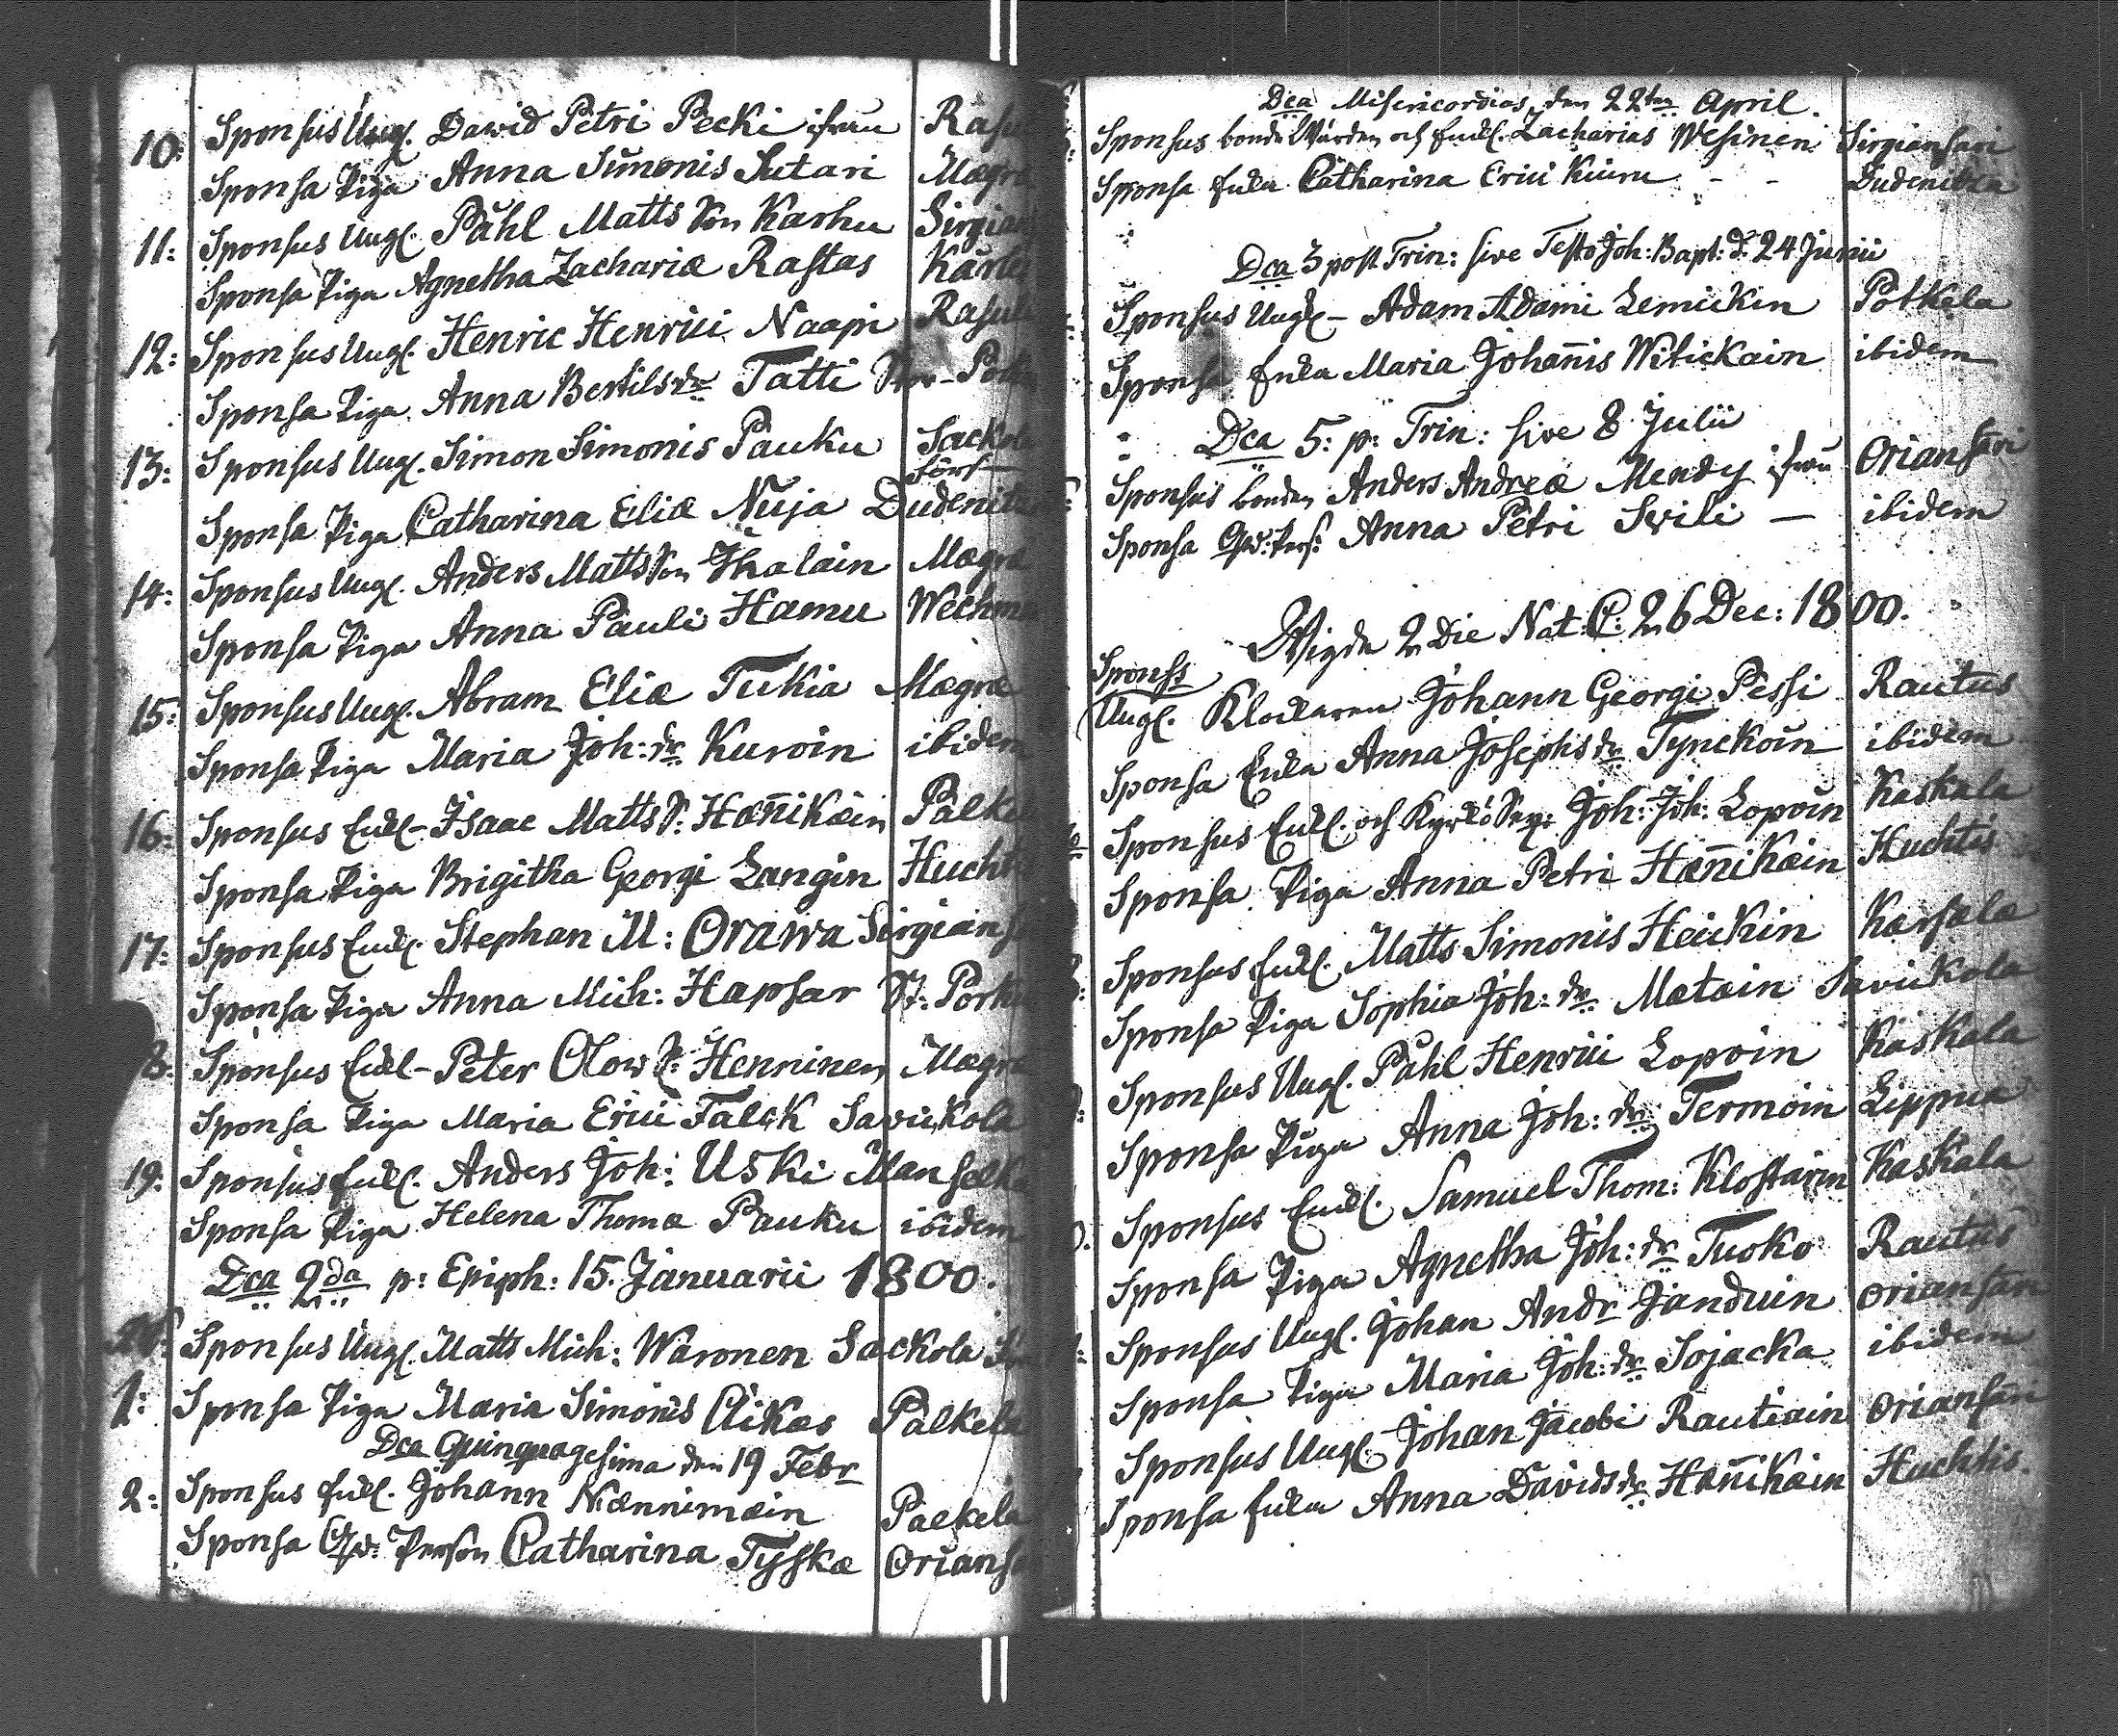 10: Sponsus Ungl. David Petri Pecki ifrån Rasu
Sponsa Piga Anna Simonis Sutari Mægræ
11: Sponsus Ungl. Påhl Matts Son Karhu Sirgian
Sponsa Piga Agnetha Zachariæ Rastas
12: Sponsus Ungl. Henric Henrici Naapi Rasul
Sponsa Piga Anna Bertilsdr Tatti
13: Sponsus Ungl. Simon Simonis Pauku Sackol
Sponsa Piga Catharina Eliæ Nuja Dudenitz
14: Sponsus Ungl. Anders Matts Son Ihalain Mægræ
Sponsa Piga Anna Pauli Hamu Wechma
15: Sponsus Ungl. Abram Eliæ Tukia Mægræ
Sponsa Piga Maria Joh: dr Kuroin ibidem
16: Sponsus Enkl. Isaac Matts S: Hæn̄ikäin Palke
Sponsa Piga Brigitha Georgi Langin Hucht
17: Sponsus Enkl. Stephan M: Orawa Sirgians
Sponsa Piga Anna Mich: Hapsar St: Porku
8: Sponsus Enkl- Peter Olow S: Henninen Mægræ
Sponsa Piga Maria Erici Falck Savickola
19: Sponsus Enkl. Anders Joh: Uski Manselkæ
Sponsa Piga Helena Thomæ Pauku ibidem
Dca 2da p: Epiph: 15. Januarii 1800.
Sponsus Ungl. Matts Mich: Waronen Sackola
1: Sponsa Piga Maria Simonis Äikas Palkela
Dca Quinquagesima den 19 Febr
2: Sponsus Enkl. Johann Nænnimæin Palkela
Sponsa Person Catharina Tyskæ Orians
Dca Misericordias, den 22ten April.
Sponsus bonde Wärden och Enkl. Zacharias Wesinen Sirgiansari
Sponsa Enka Catharina Erici Kiuru - - Dudenitza
Dca 3 post Trin: sive Festo Joh: Bapt: d. 24 Junii
Sponsus Ungl- Adam Adami Lemickin Potkela
Sponsa Enka Maria Johan̄is Witickain ibidem
Dca 5: p: Trin: sive 8 Julii
Sponsus bonden Anders Andreæ Mendy ifrån Oriansari
Sponsa Anna Petri Swili — ibidem
Wigda 2 Die Nat: C: 26 Dec: 1800.
Sponss
Ungl. Klockaren Johann Georgi Pessi Rautus
Sponsa Enka Anna Josephs dr Tynckoin ibidem
Sponsus Enkl. och Joh: Joh: Lopoin Kaskala
Sponsa Piga Anna Petri Hæn̄ikæin Huchtis
Sponsus Enkl. Matts Simonis Heickin Karsala
Sponsa Piga Sophia Joh: dr Mætæin Savickola
Sponsus Ungl. Påhl Henrici Lopoin Kaskala
Sponsa Piga Anna Joh: dr Termoin Lippua
Sponsus Enkl. Samuel Thom: Klostarin Kaskala
Sponsa Piga Agnetha Joh: dr Tuoko Rautus
Sponsus Ungl. Johan Andr Janduin Oriansari
Sponsa Piga Maria Joh: dr Sojacka ibidem
Sponsus Ungl Johan Jacobi Rautiain Oriansari
Sponsa Enka Anna Davids dr Hæn̄ikæin Huchtis.